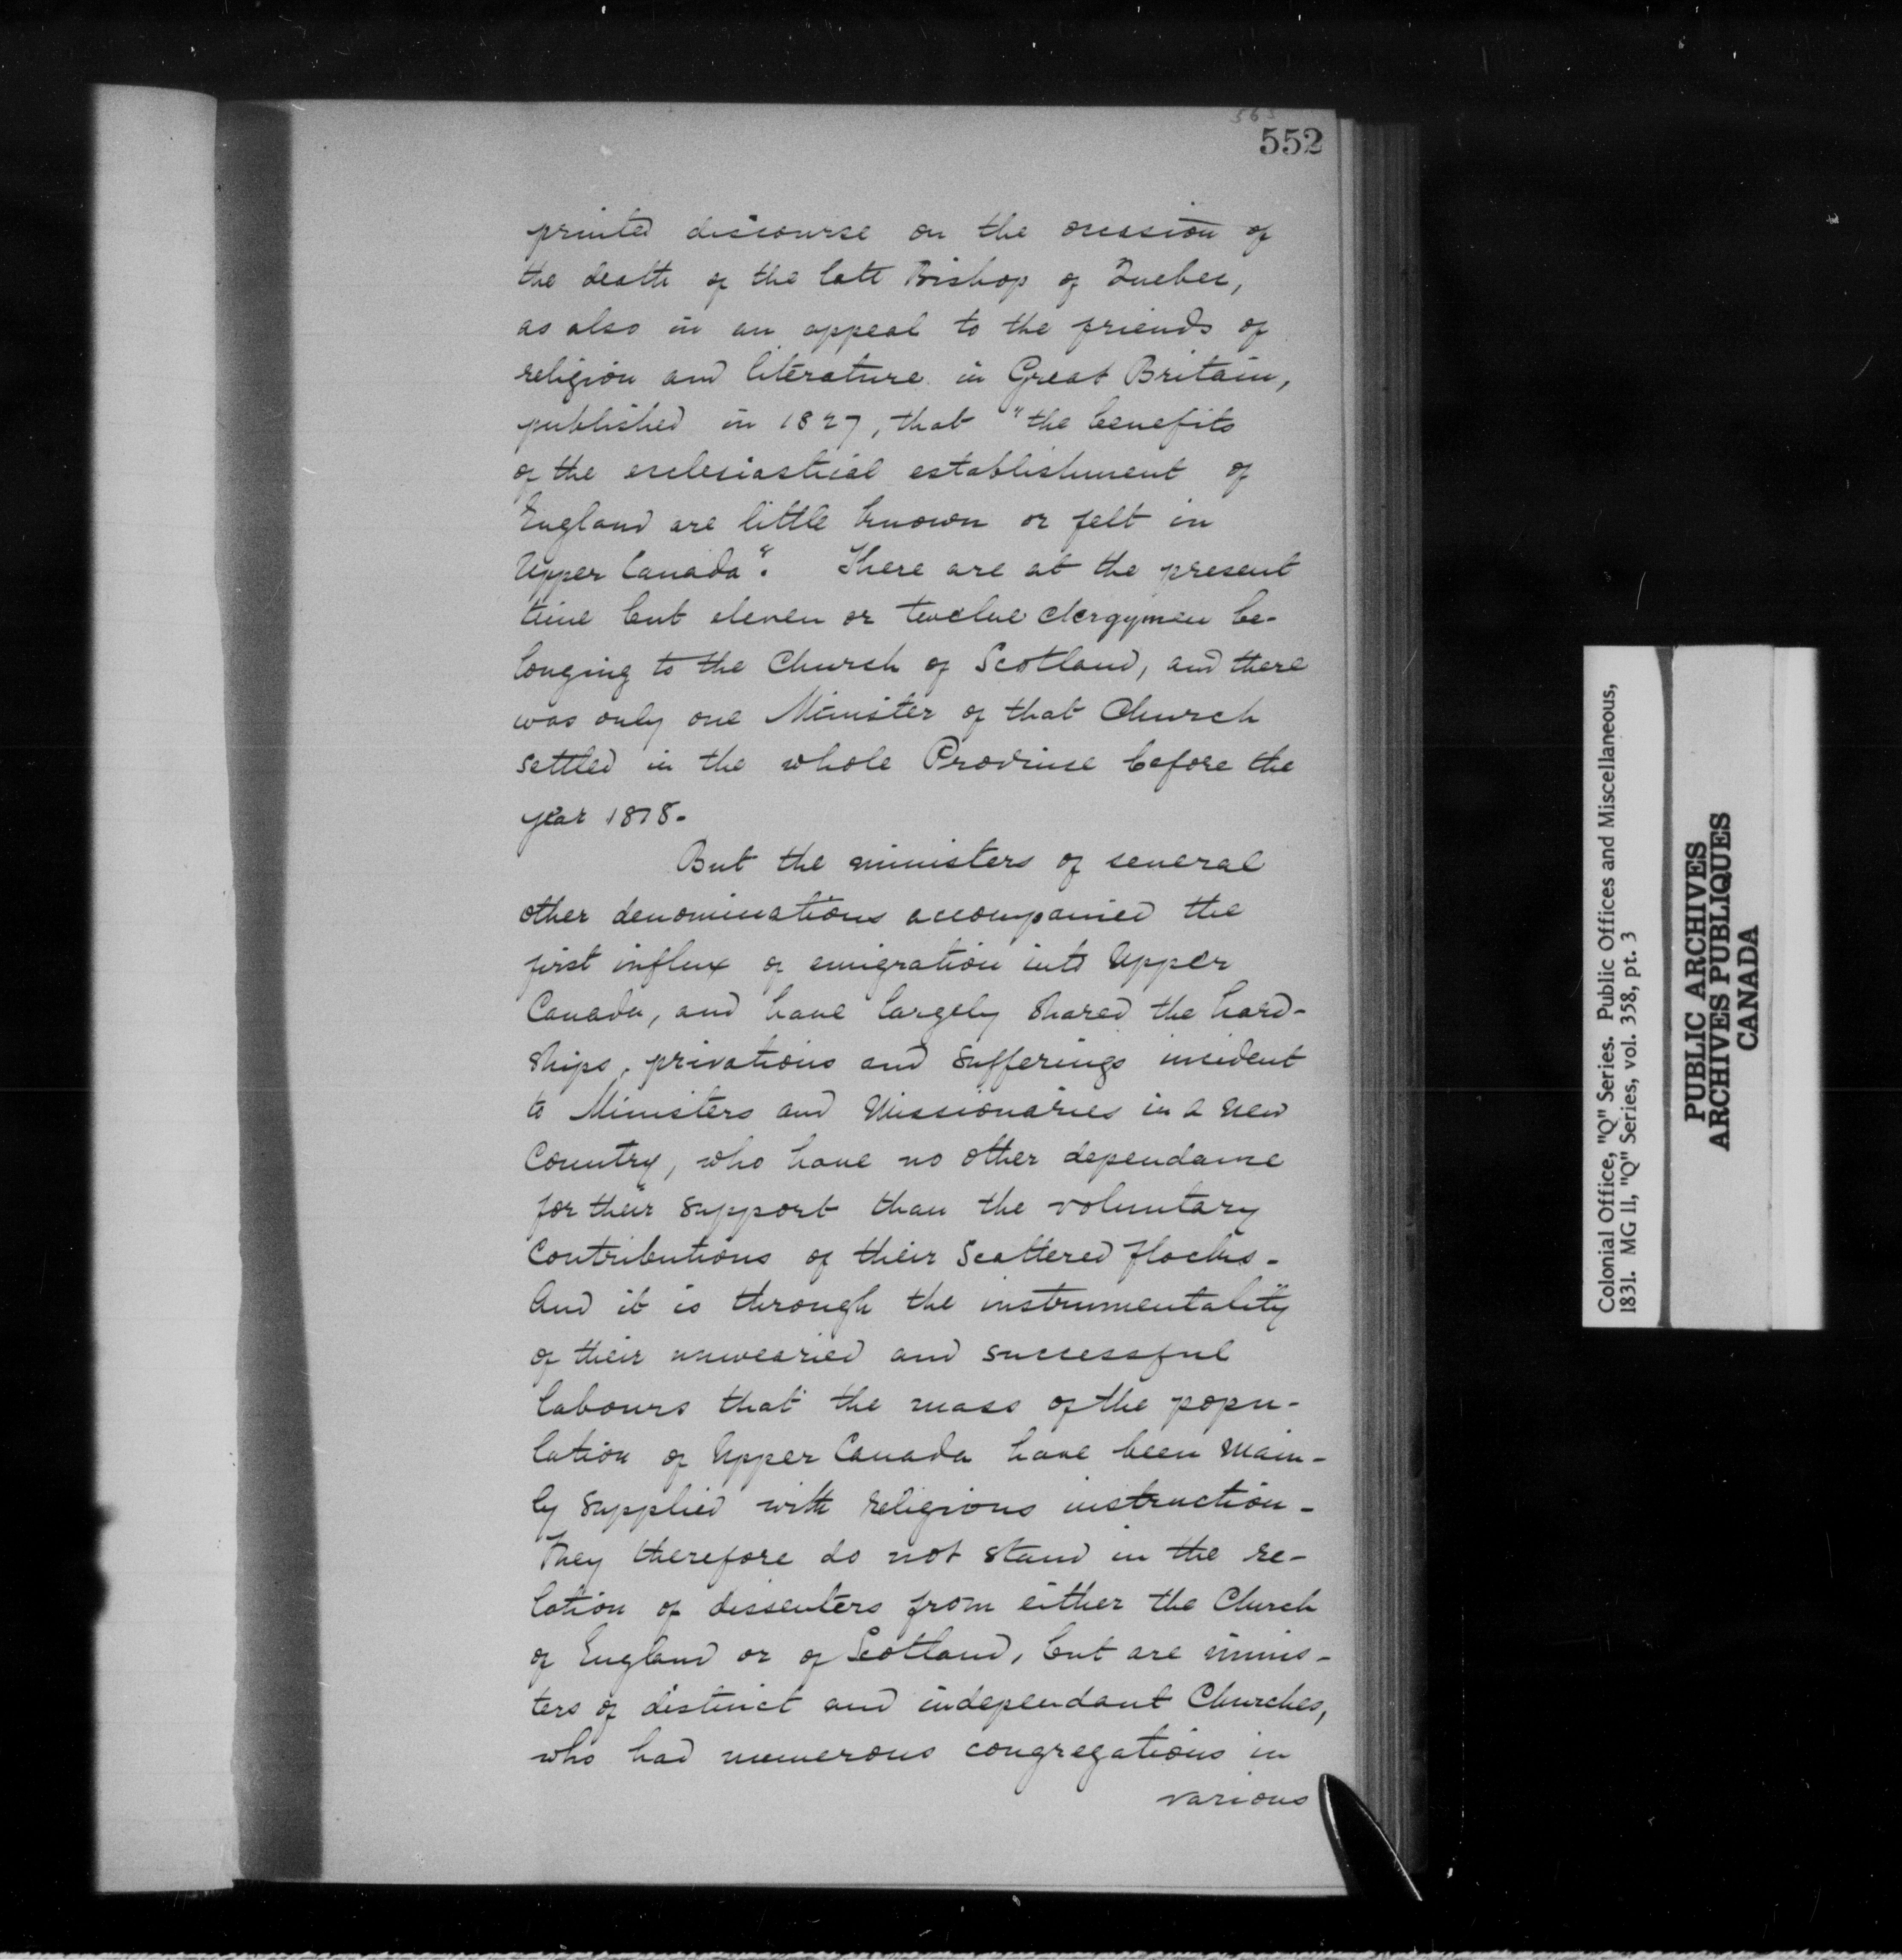 563
552
printed discourse on the occasion of
the death of the late Bishop of Quebec,
as also in an appeal to the friends of
religion and literature in Great Britain,
published in 1827, that "the benefits
of the ecclesiastical establishment of
England are little known or felt in
Upper Canada". There are at the present
time but eleven or twelve clergymen be-
longing to the Church of Scotland, and there
was only one Minister of that Church
settled in the whole Province before the
year 1818.
But the ministers of several
other denominations accompanied the
first influx of emigration into Upper
Canada, and have largely shared the hard-
ships, privations and sufferings incident
to Ministers and Missionaries in a new
Country, who have no other dependance
for their support than the voluntary
Contributions of their Scattered flocks -
And it is through the instrumentality
of their unwearied and successful
labours that the mass of the popu-
lation of Upper Canada have been main-
ly supplied with religious instruction -
They therefore do not stand in the re-
lation of dissenters from either the Church
of England or of Scotland, but are minis-
ters of distinct and independant Churches,
who had numerous congregations in
various
Colonial Office, "Q" Series. Public Offices and Miscellaneous,
1831. MG 11, "Q" Series, vol. 358, pt. 3
PUBLIC ARCHIVES
ARCHIVES PUBLIQUES
CANADA